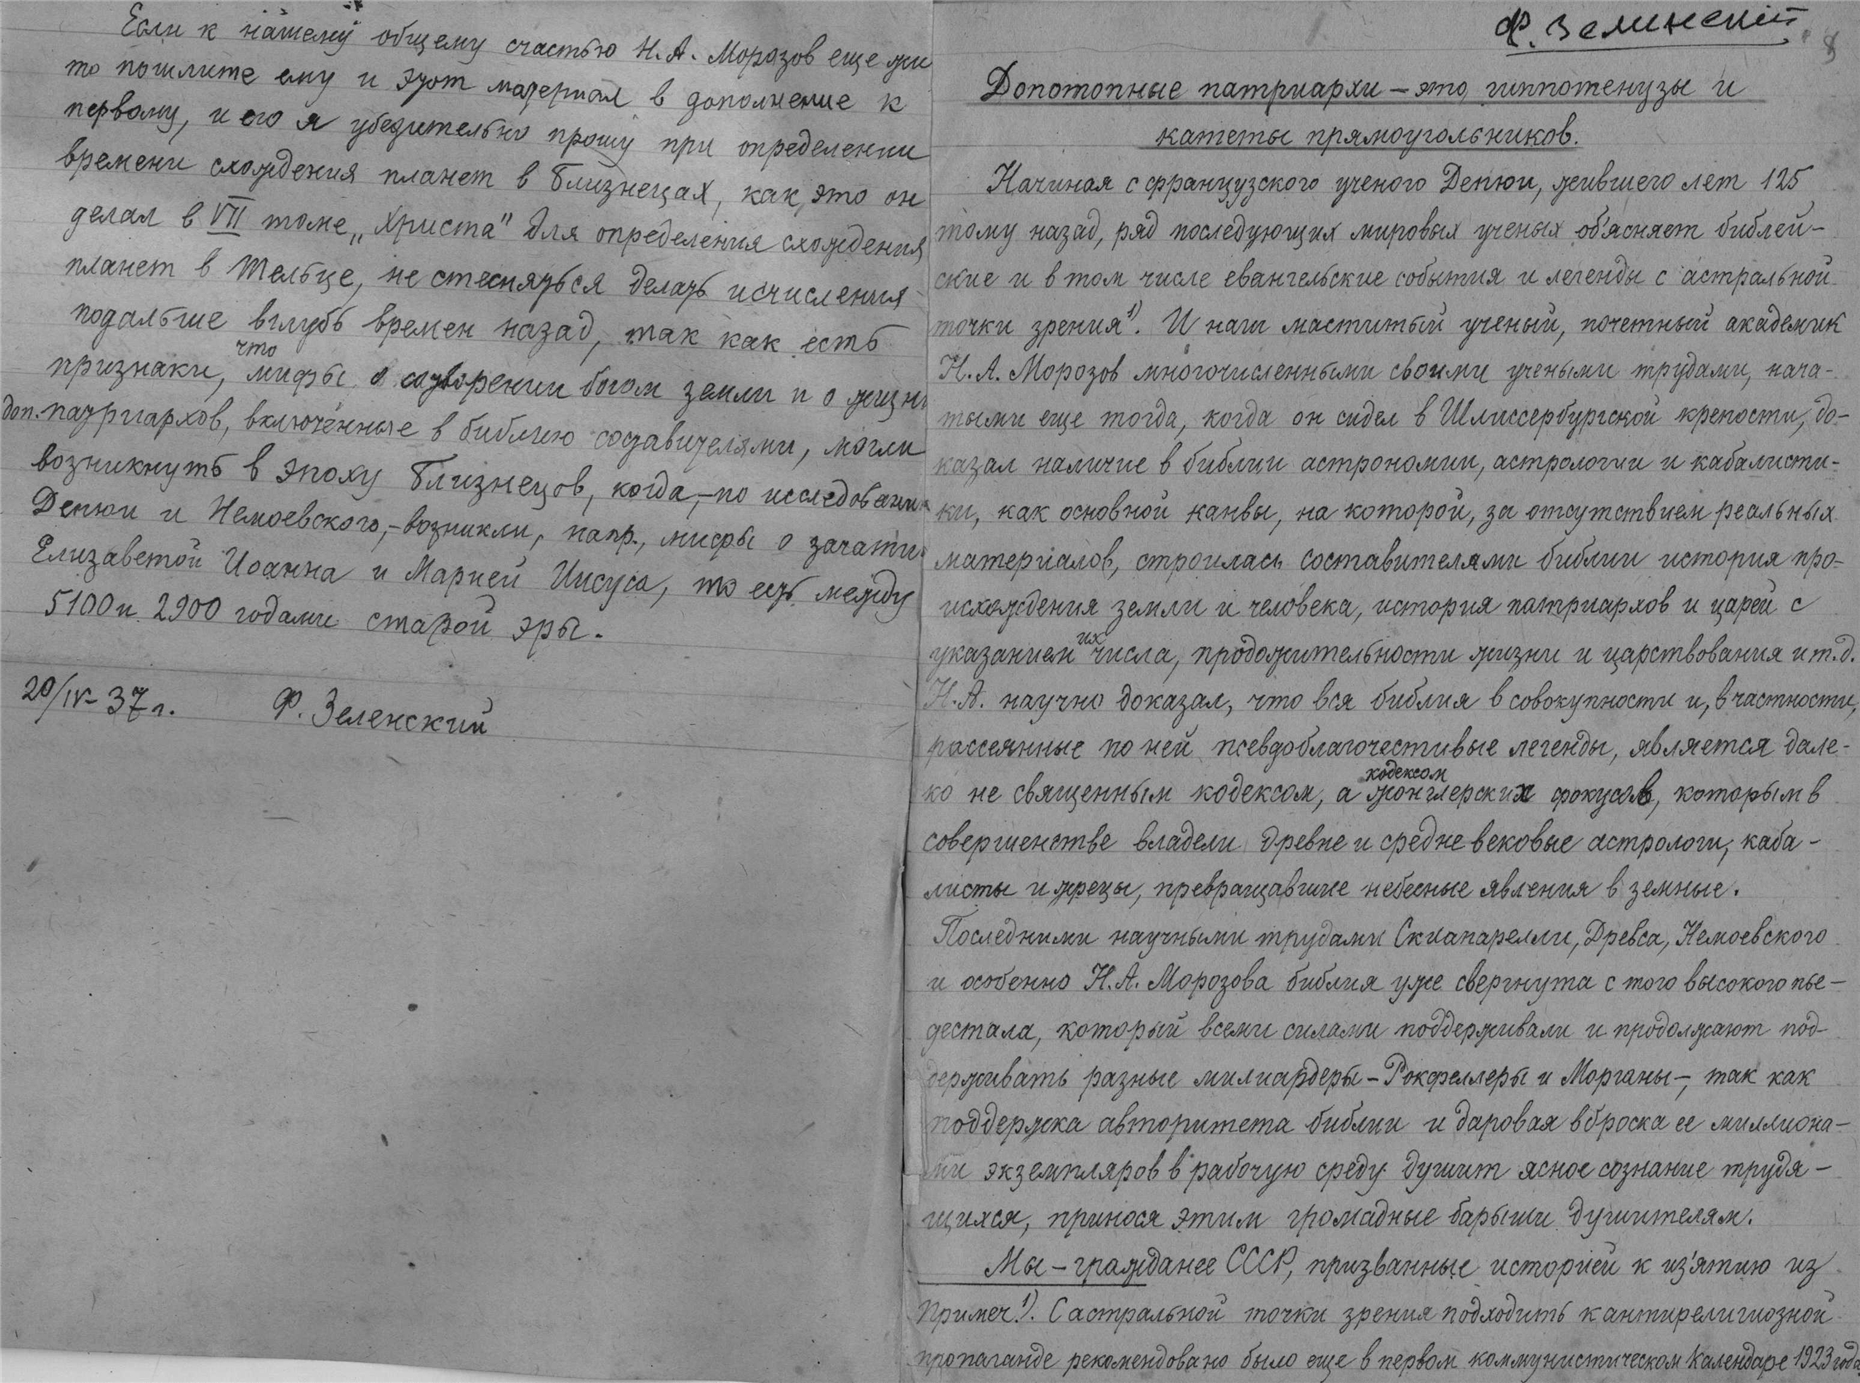 Если к нашему общему счастью Н.А. Морозов еще жи
то пошлите ему и этот материал в дополнение к
первому, и его я убедительно прошу при определении
времени схождения планет в Близнецах, как это он
делал в VII томе „Христа" для определения схождения
планет в Тельце, не стесняться делать исчисления
подальше вглубь времен назад, так как есть
признаки, что мифы о сотворении богом земли и о жизн
доп. патриархов, включенные в библию составителями, могли
возникнуть в эпоху Близнецов, когда,-по исследовани
Депюи и Немоевского,-возникли, напр., мифы о зачати
Елизаветой Иоанна и Марией Иисуса, то есть между
5100 и 2900 годами старой эры.
20/IV-37 г. Ф. Зеленский
Ф. Зелинский
8
Допотопные патриархи – это гиппотенузы и
катеты прямоугольников.
Начиная с французского ученого Депюи, жившего лет 125
тому назад, ряд последующих мировых ученых об'ясняет библей-
ские и в том числе евангельские события и легенды с астральной
точки зрения¹⁾. И наш маститый ученый, почетный академик
Н.А. Морозов многочисленными своими учеными трудами, нача-
тыми еще тогда, когда он сидел в Шлиссербургской крепости, до-
казал наличие в библии астрономии, астрологии и кабалисти-
ки, как основной канвы, на которой, за отсутствием реальных
материалов, строилась составителями библии история про-
исхождения земли и человека, история патриархов и царей с
указанием их числа, продожительности жизни и царствования и т.д.
Н.А. научно доказал, что вся библия в совокупности и, в частности,
рассеянные по ней псевдоблагочестивые легенды, является дале-
ко не священным кодексом, а кодексом жонглерских фокусов, которым в
совершенстве владели древне и средне вековые астрологи, каба-
листы и жрецы, превращавшие небесные явления в земные.
Последними научными трудами Скиапарелли, Древса, Немоевского
и особенно Н.А. Морозова библия уже свергнута с того высокого пье-
дестала, который всеми силами поддерживали и продолжают под-
держивать разные милиардеры – Рокфеллеры и Морганы –, так как
поддержка авторитета библии и даровая вброска ее миллиона-
ми экземпляров в рабочую среду душит ясное сознание трудя-
щихся, принося этим громадные барыши душителям.
Мы – граждане СССР, призванные историей к из'ятию из
Примеч.¹⁾. С астральной точки зрения подходить к антирелигиозной
пропаганде рекомендовано было еще в первом коммунистическом календаре 1923 года